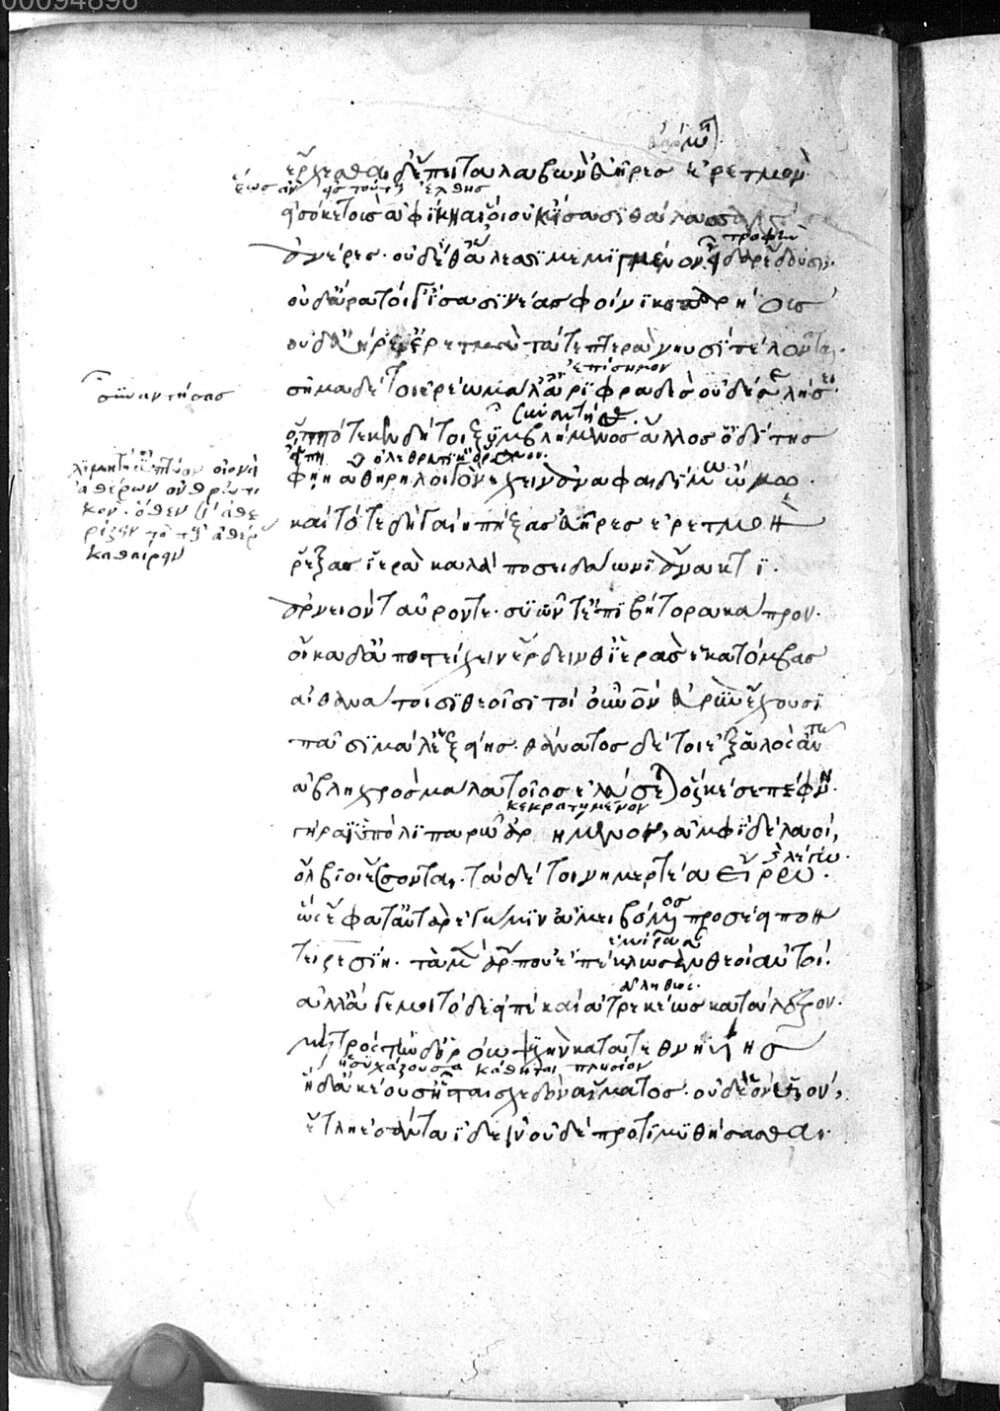 00094896
ἔρχεσθαι δἤπειτα λαβὼν εὐῆρες ἐρετμὸν
ἕως ἂν εἰς τούτους ἔλθῃς
εἰσόκε τοὺς ἀφίκηαι οἳ οὐκ ἴσασι θάλασσαν
τροφὴν
ἀνέρες· οὐδέ θ' ἅλεσσι μεμιγμένον εἶδαρ ἔδουσιν·
οὐδ' ἄρα τοὶ ἴσασι νέας φοινικοπαρῄους
οὐδ' εὐήρε' ἐρετμὰ τά τε πτερὰ νηυσὶ πέλονται·
ἐπίσημον
σῆμα δέ τοι ἐρέω μάλ' ἀριφραδὲς οὐδέ σε λήσει·
συναντήσας
ὁππότε κεν δή τοι ξυμβλήμενος ἄλλος ὁδίτης
φήῃ ἀθηρηλοιγὸν ἔχειν ἀνὰ φαιδίμῳ ὤμῳ·
καὶ τότε δὴ γαίῃ πήξας εὐῆρες ἐρετμὸν
ῥέξας ἱερὰ καλὰ ποσειδάωνι ἄνακτι·
ἀρνειὸν ταῦρόν τε· συῶν τ' ἐπιβήτορα κάπρον·
οἴκαδ' ἀποστείχειν ἔρδειν θ' ἱερὰς ἑκατόμβας
ἀθανάτοισι θεοῖσι τοὶ οὐρανὸν εὐρὺν ἔχουσι
πᾶσι μάλ' ἑξείης· θάνατος δέ τοι ἐξ ἁλὸς αὐτῷ
ἀβληχρὸς μάλα τοῖος ἐλεύσεται ὅς κέ σε πέφνῃ·
κεκρατημένον
γήρᾳ ὑπὸ λιπαρῷ ἀρημένον, ἀμφὶ δὲ λαοὶ,
ὄλβιοι ἔσσονται· τὰ δέ τοι νημερτέα εἴρω·
ὣς ἔφατ' αὐτὰρ ἐγώ μιν ἀμειβόμενος προσέειπον
τειρεσίη· τὰ μὲν ἄρ που ἐπέκλωσαν θεοὶ αὐτοί·
ἀληθῶς·
ἀλλ' ἄγε μοι τόδε εἰπὲ καὶ ἀτρεκέως κατάλεξον·
μητρὸς τήνδ' ὁρόω ψυχὴν κατατεθνηυίης
ἡσυχάζουσα κάθηται πλησίον
ἡ δ' ἀκέουσ' ἧσται σχεδὸν αἵματος· οὐδ' ἑὸν υἱὸν,
ἔτλη ἐσάντα ἰδεῖν οὐδὲ προτιμυθήσασθαι·
συναντήσας
καθαίρειν